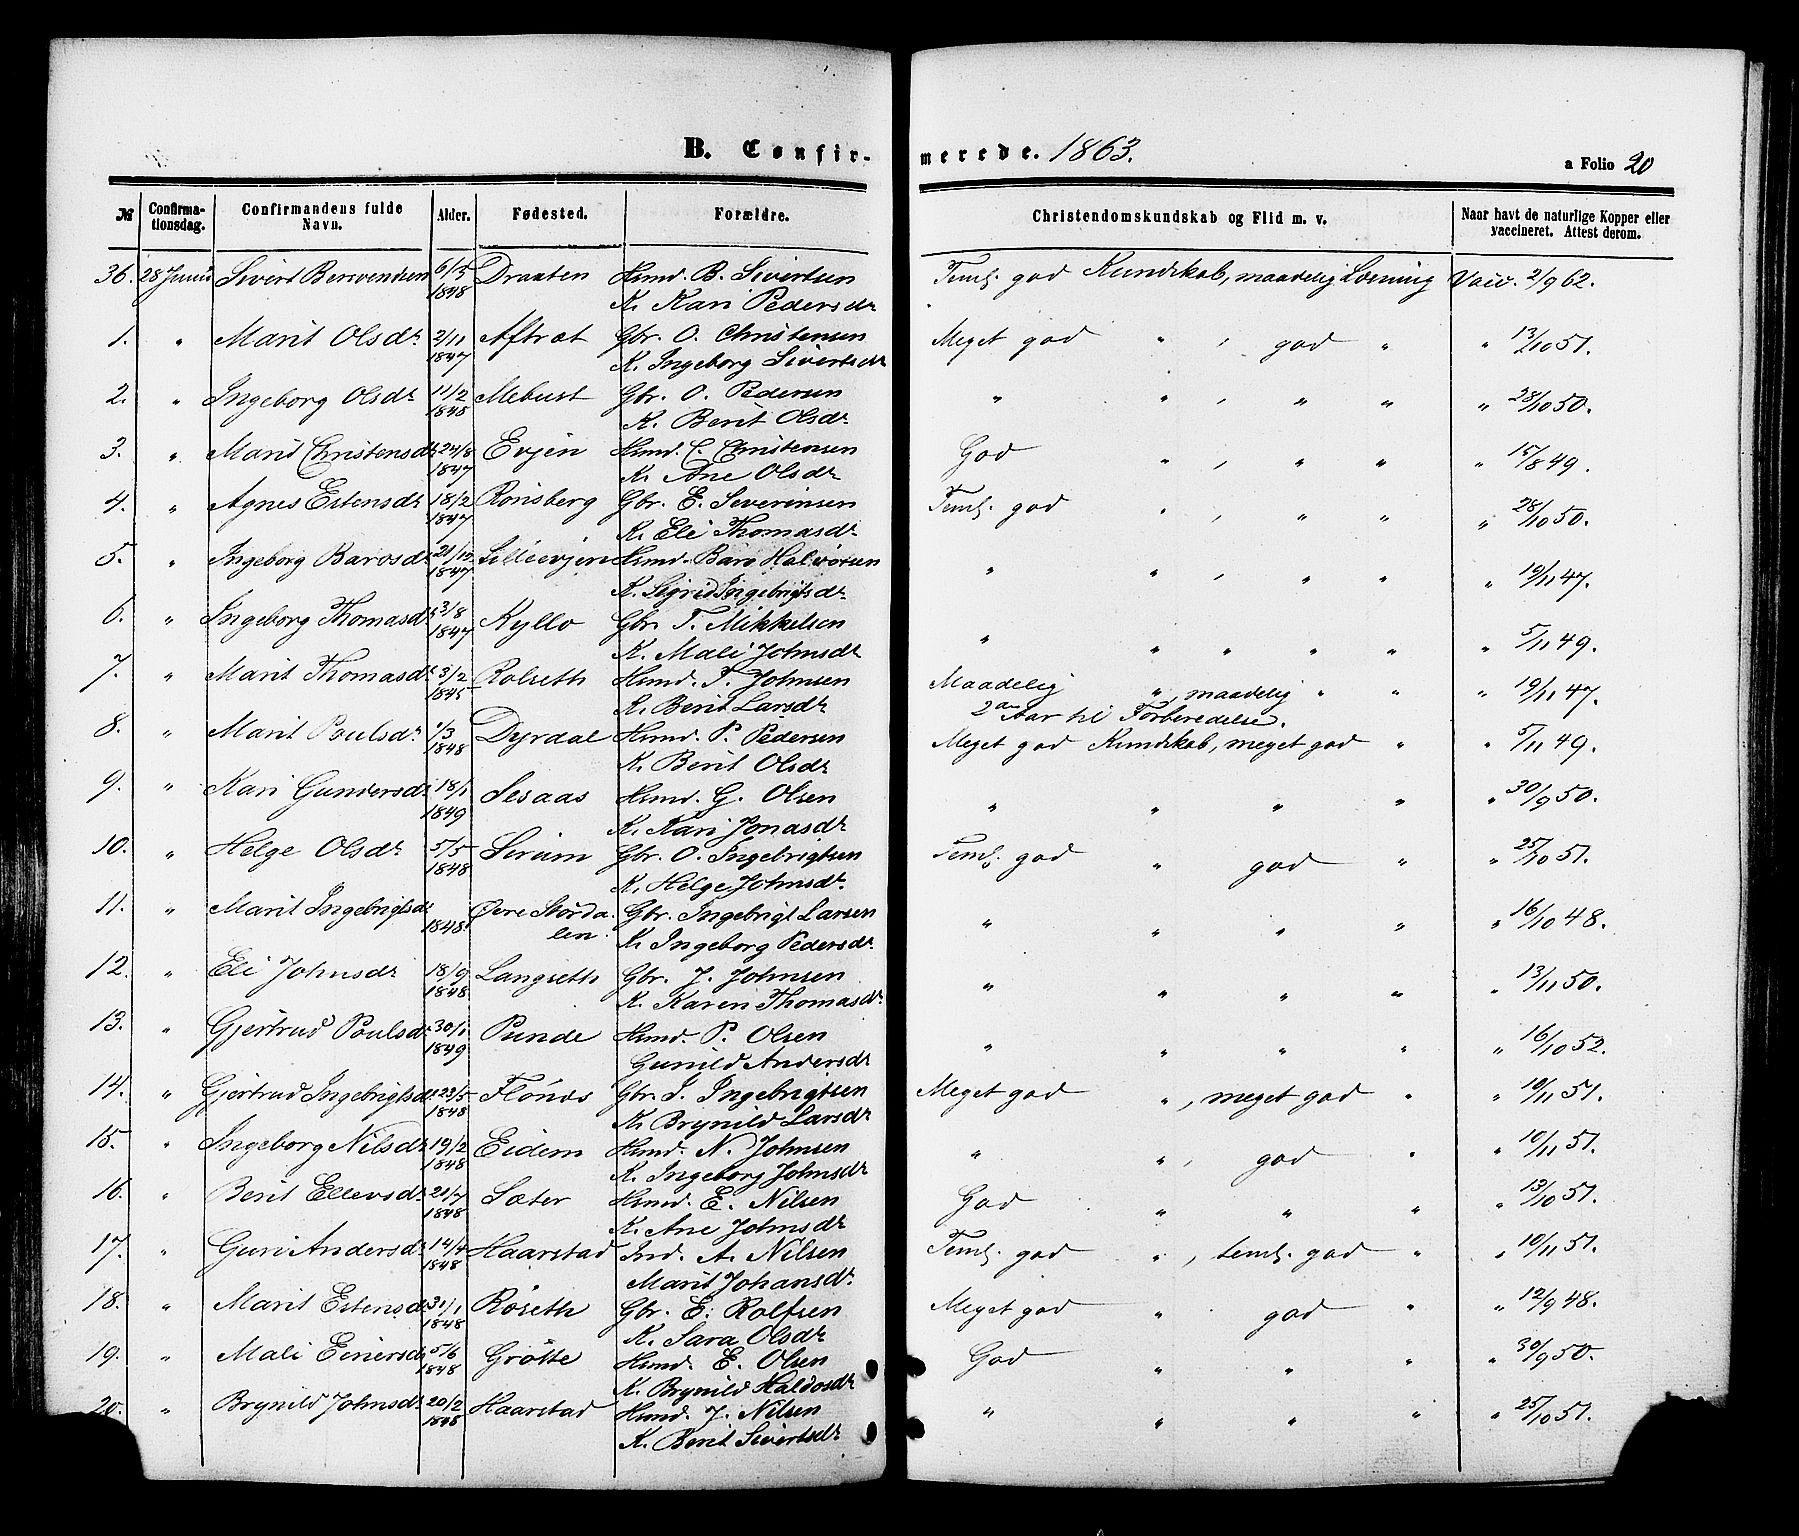 B. Confir-
merede. 1863.
a Folio 20
№ Confirma-tionsdag. Confirmandens fulde Navn. Alder. Fødested. Forældre. Christendomskundskab og Flid m. v. Naar havt de naturlige Kopper eller vaccineret. Attest derom.
36. 28 Juni Sivert Bersvendsen 6/3 Draaten Hsmd. B. Sivertsen Teml. god Kundskab, maadelig Læsning Vacc. 2/9 62.
1848 K. Kari Pedersdr
1. " Marit Olsdr 2/11 Aftret Gbr. O. Christensen Meget god " , god " " 13/10 51.
1847 K. Ingeborg Sivertsdr
2. " Ingeborg Olsdr 11/2 Mebust Gbr. O. Pedersen " " , " " " 28/10 50.
1848 K. Berit Olsdr
3. " Marit Christensdr 24/8 Evjen Hsmd. C. Christensen God " , " " " 15/8 49.
1847 K. Ane Olsdr
4. " Agnes Estensdr 18/2 Rønsberg Gbr. E. Severinsen Teml. god " , " " " 28/10 50.
1847 K. Eli Thomasdr
5. " Ingeborg Barosdr 21/12 Lillievjen Hsmd. Baro Halvorsen " " , " " " 19/11 47.
1847 K. Sigrid Ingebrigtsdr
6. " Ingeborg Thomasdr 3/8 Kyllo Gbr. T. Mikkelsen " " " " " " 5/11 49.
1847 K. Mali Johnsdr
7. " Marit Thomasdr 3/2 Rolseth Hsmd. T. Johnsen Maadelig ", maadelig " " " 19/11 47.
1845 K. Berit Larsdr 2de Aar til Forberedelse.
8. " Marit Poulsdr 1/3 Dyrdal Hsmd. P. Pedersen Meget god Kundskab, meget god " " 5/11 49.
1848 K. Berit Olsdr
9. " Kari Gundersdr 18/1 Sesaas Hsmd. G. Olsen " " " " " 30/9 50.
1849 K. Kari Jonasdr
10. " Helge Olsdr 5/5 Serum Gbr. O. Ingebrigtsen Teml. god " god " " 25/10 51.
1848 K. Helge Johnsdr.
11. " Marit Ingebrigtsdr Øvre Størda- Gbr. Ingebrigt Larsen " " " " " 16/10 48.
1848 len. K. Ingeborg Pedersdr.
12. " Eli Johnsdr 18/9 Langseth Gbr. J. Johnsen " " " " " 13/11 50.
1848 K. Karen Thomasdr.
13. " Gjertrud Poulsdr 30/1 Punde Hsmd. P. Olsen " " " " " 16/10 52.
1849 Gunild Andersdr
14. " Gjertrud Ingebrigtsdr 23/5 Flönes Gbr. I. Ingebrigtsen Meget god ", meget god " " 19/11 51.
1848 K. Brynild Larsdr
15. " Ingeborg Nilsdr 19/2 Eidem Hsmd. N. Johnsen " " , god " " 10/11 51.
1848 K. Ingeborg Johnsdr
16. " Berit Ellevsdr 21/7 Sæter Hsmd. E. Nilsen God " " " " 13/10 51.
1848 K. Ane Johnsdr
17. " Guri Andersdr 14/4 Haarstad Ind. A. Nilsen Teml. god ", teml. god " " 10/11 51.
1848 Marit Johansdr.
18. " Marit Estensdr 31/1 Röseth Gbr. E. Rolfsen Meget god " god " " 12/9 48.
1848 K. Sara Olsdr
19. " Mali Einersdr 5/6 Grötte Hsmd. E. Olsen God " " " " 30/9 50.
1848 K. Brynild Haldosdr
20. " Brynild Johnsdr 20/2 Haarstad Hsmd. J. Nilsen " " " " " 25/10 51.
1848 K. Berit Sivertsdr